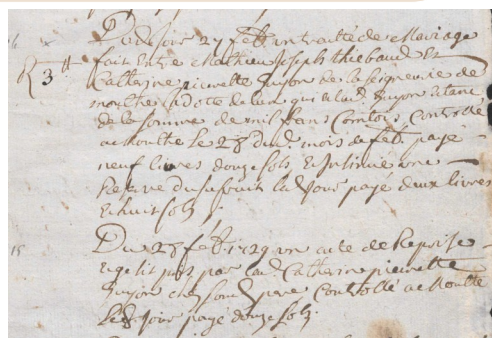 Du d. jour 27 feb. un traité de Mariage
R 3tt fait entre Mathieu Joseph thiebaud Et
Catherine pierrette Guyon de la seigneurie de
mouthe la dote de la quelle d. Guyon étant
de la somme de mil frans Comtois Controllé
a Mouthe le 28 dud. mois de feb. payé
neuf livres douze sols Et Insinué une
Reserve led. jour payé deux livres
Et huit sols
15 Du 28 feb. 1729 un acte de Reprise
par lad. Catherine pierrette
Guyon chez son d. pere Controllé a Mouthe
led. jour payé douze sols.